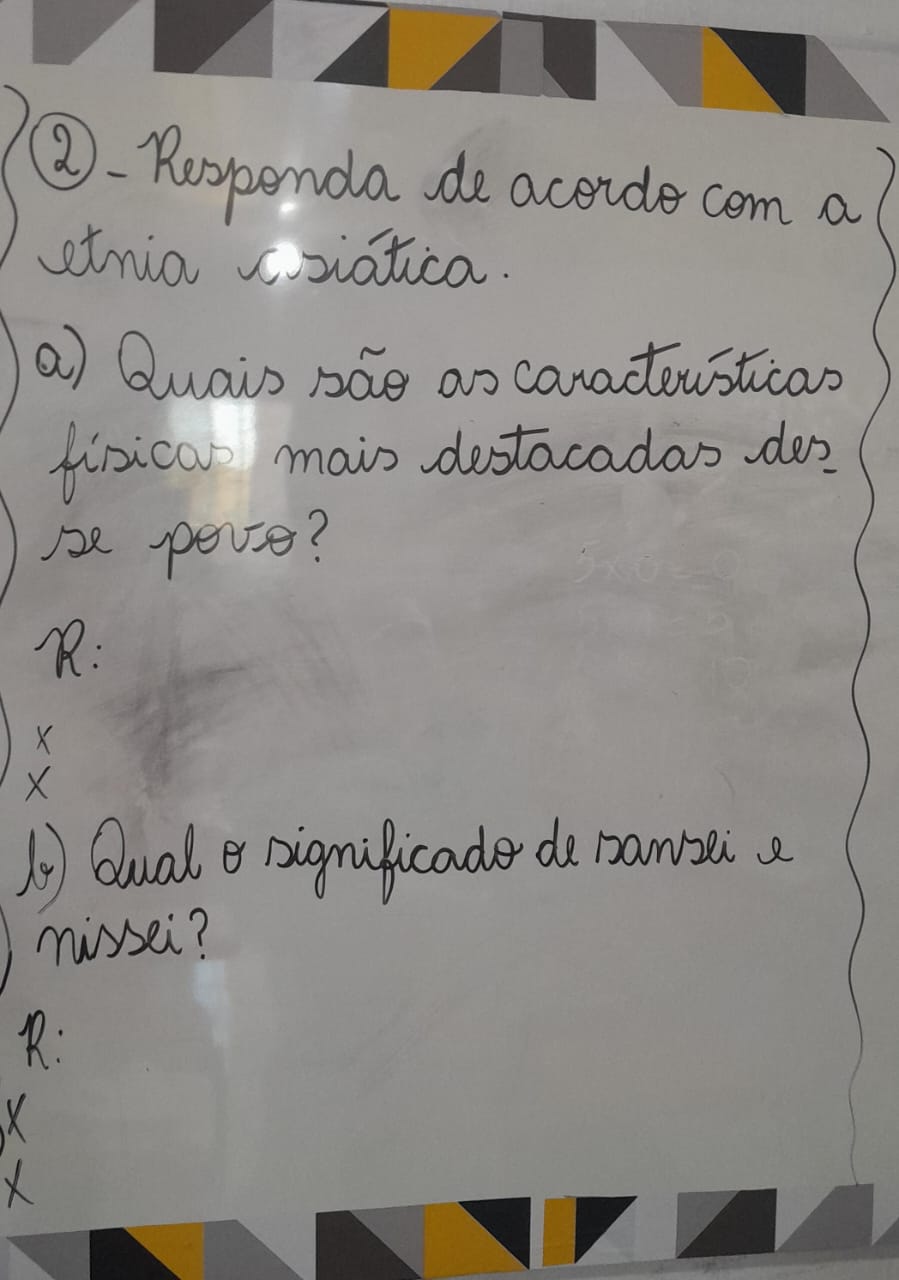 2 - Responda de acordo com a
etnia asiática.
a) Quais são as características
físicas mais destacadas des-
se povo?
R:
x
x
b) Qual o significado de sansei e
nissei?
R:
x
x